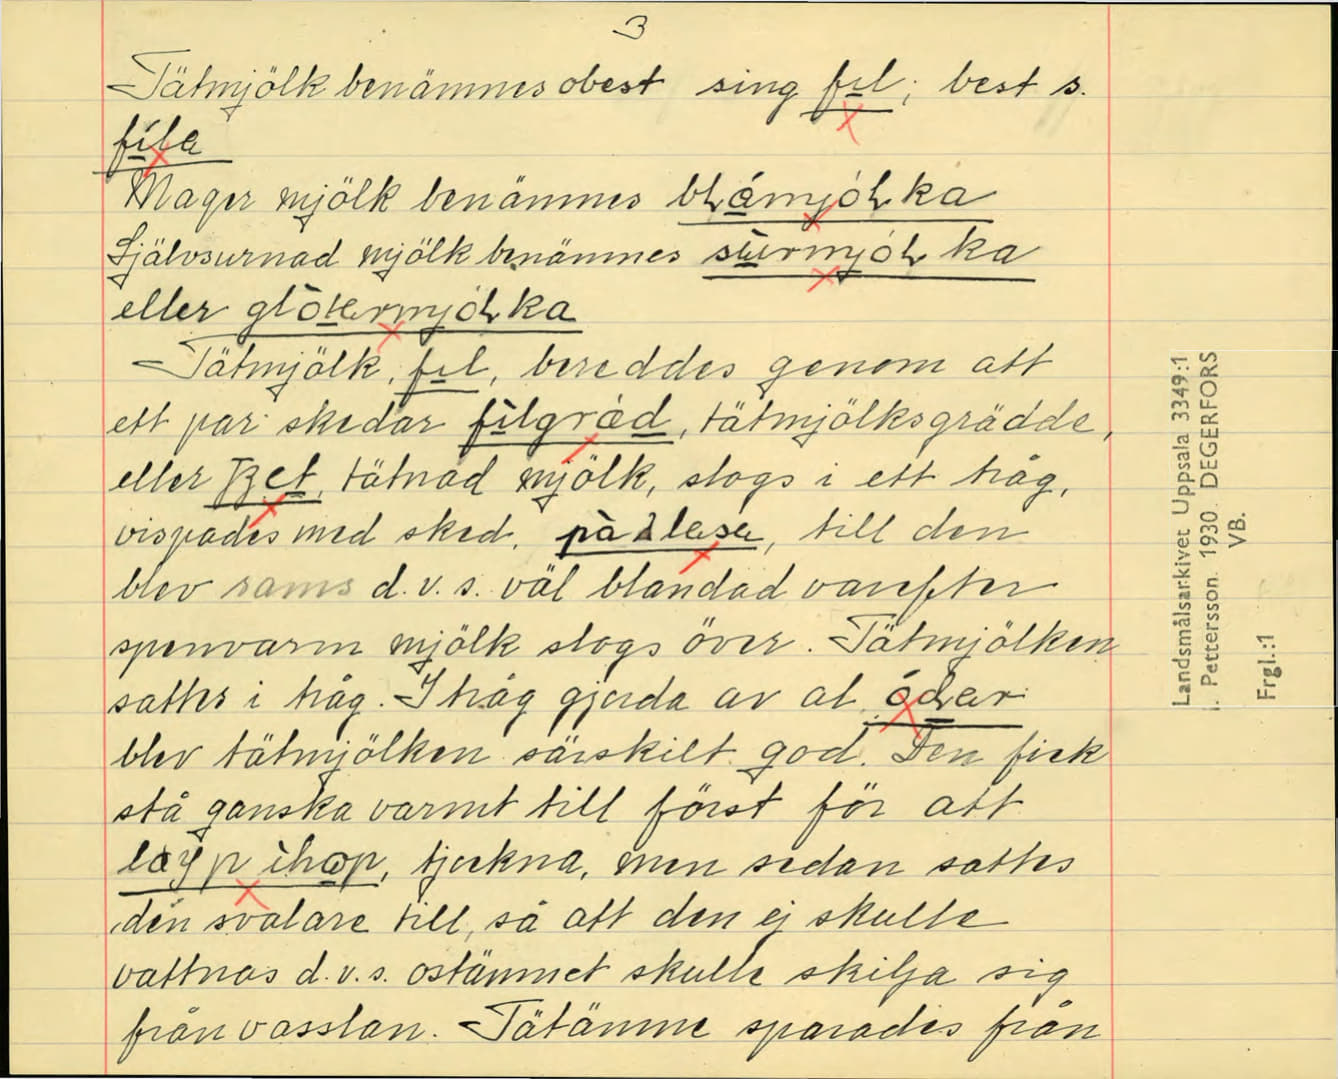 3
Tätmjölk benämnes obest sing fil; best s.
fila
Mager mjölk benämnes blåmjólka
Självsurnad mjölk benämnes sùrmjólka
eller glòttermjólka
Tätmjölk, fil, bereddes genom att
ett par skedar filgräd, tätmjölksgrädde,
eller tjet, tätnad mjölk, slogs i ett tråg,
vispades med sked, till den
blev rams d.v.s. väl blandad varefter
spenvarm mjölk slogs över. Tätmjölken
sattes i tråg. I tråg gjorda av al, ódar
blev tätmjölken särskilt god. Den fick
stå ganska varmt till först för att
löyp ihop, tjockna, men sedan sattes
den svalare till, så att den ej skulle
vattnas d.v.s. ostämnet skulle skilja sig
från vasslan. Tätämne sparades från
Landsmålsarkivet Uppsala 3349:1
J. Pettersson. 1930. DEGERFORS
VB.
Frgl.:1